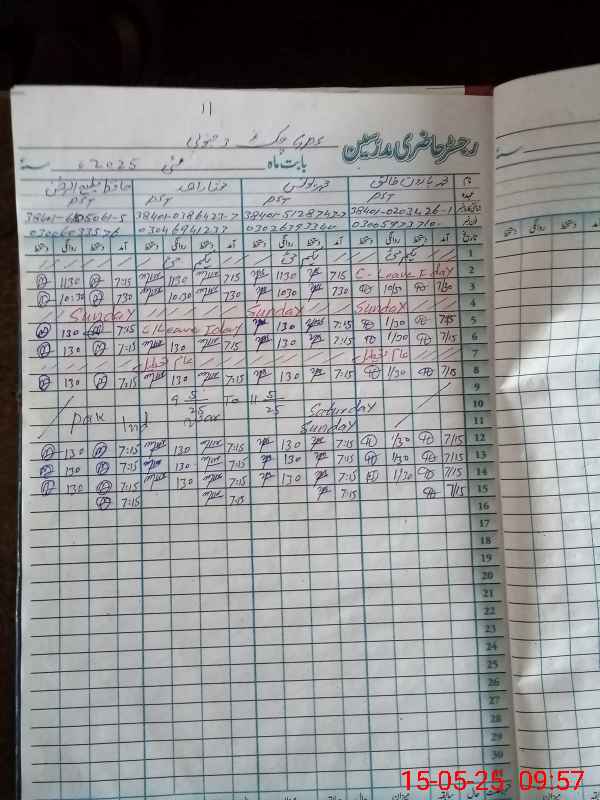 11
رجسٹر حاضری مدرسین
GPS چک
بابت ماہ مئی 2025ء سنہ
محمد ہارون خالق محمد یونس مختار احمد حافظ
PST PST PST PST
38401-0203426-1 38401-5128743-7 38401-0386423-7
03005973710 03026397360 03046941237 03006033576
تاریخ آمد دستخط روانگی دستخط آمد دستخط روانگی دستخط آمد دستخط روانگی دستخط آمد دستخط روانگی دستخط
1
2 C-Leave 1 day 7:15 1130 7:15 1130 7:15 1130
3 7/30 10/30 730 1030 730 10:30 730 10:30
4 Sunday Sunday Sunday
5 7/15 1/30 7:15 130 C/Leave 1 day 7:15 130
6 7/15 1/30 7:15 130 7:15 130 7:15 130
7 عام تعطیل عام تعطیل
8 7/15 1/30 7:15 130 7:15 130 7:15 130
9 9 5/25 To 11 5/25
10 Pak Ind War Saturday
11 Sunday
12 7/15 1/30 7:15 130 7:15 130 7:15 130
13 7/15 1/30 7:15 130 7:15 130 7:15 130
14 7/15 1/30 7:15 130 7:15 130 7:15 130
15 7/15 7:15 7:15 7:15
16
17
18
19
20
21
22
23
24
25
26
27
28
29
30
15-05-25 09:57